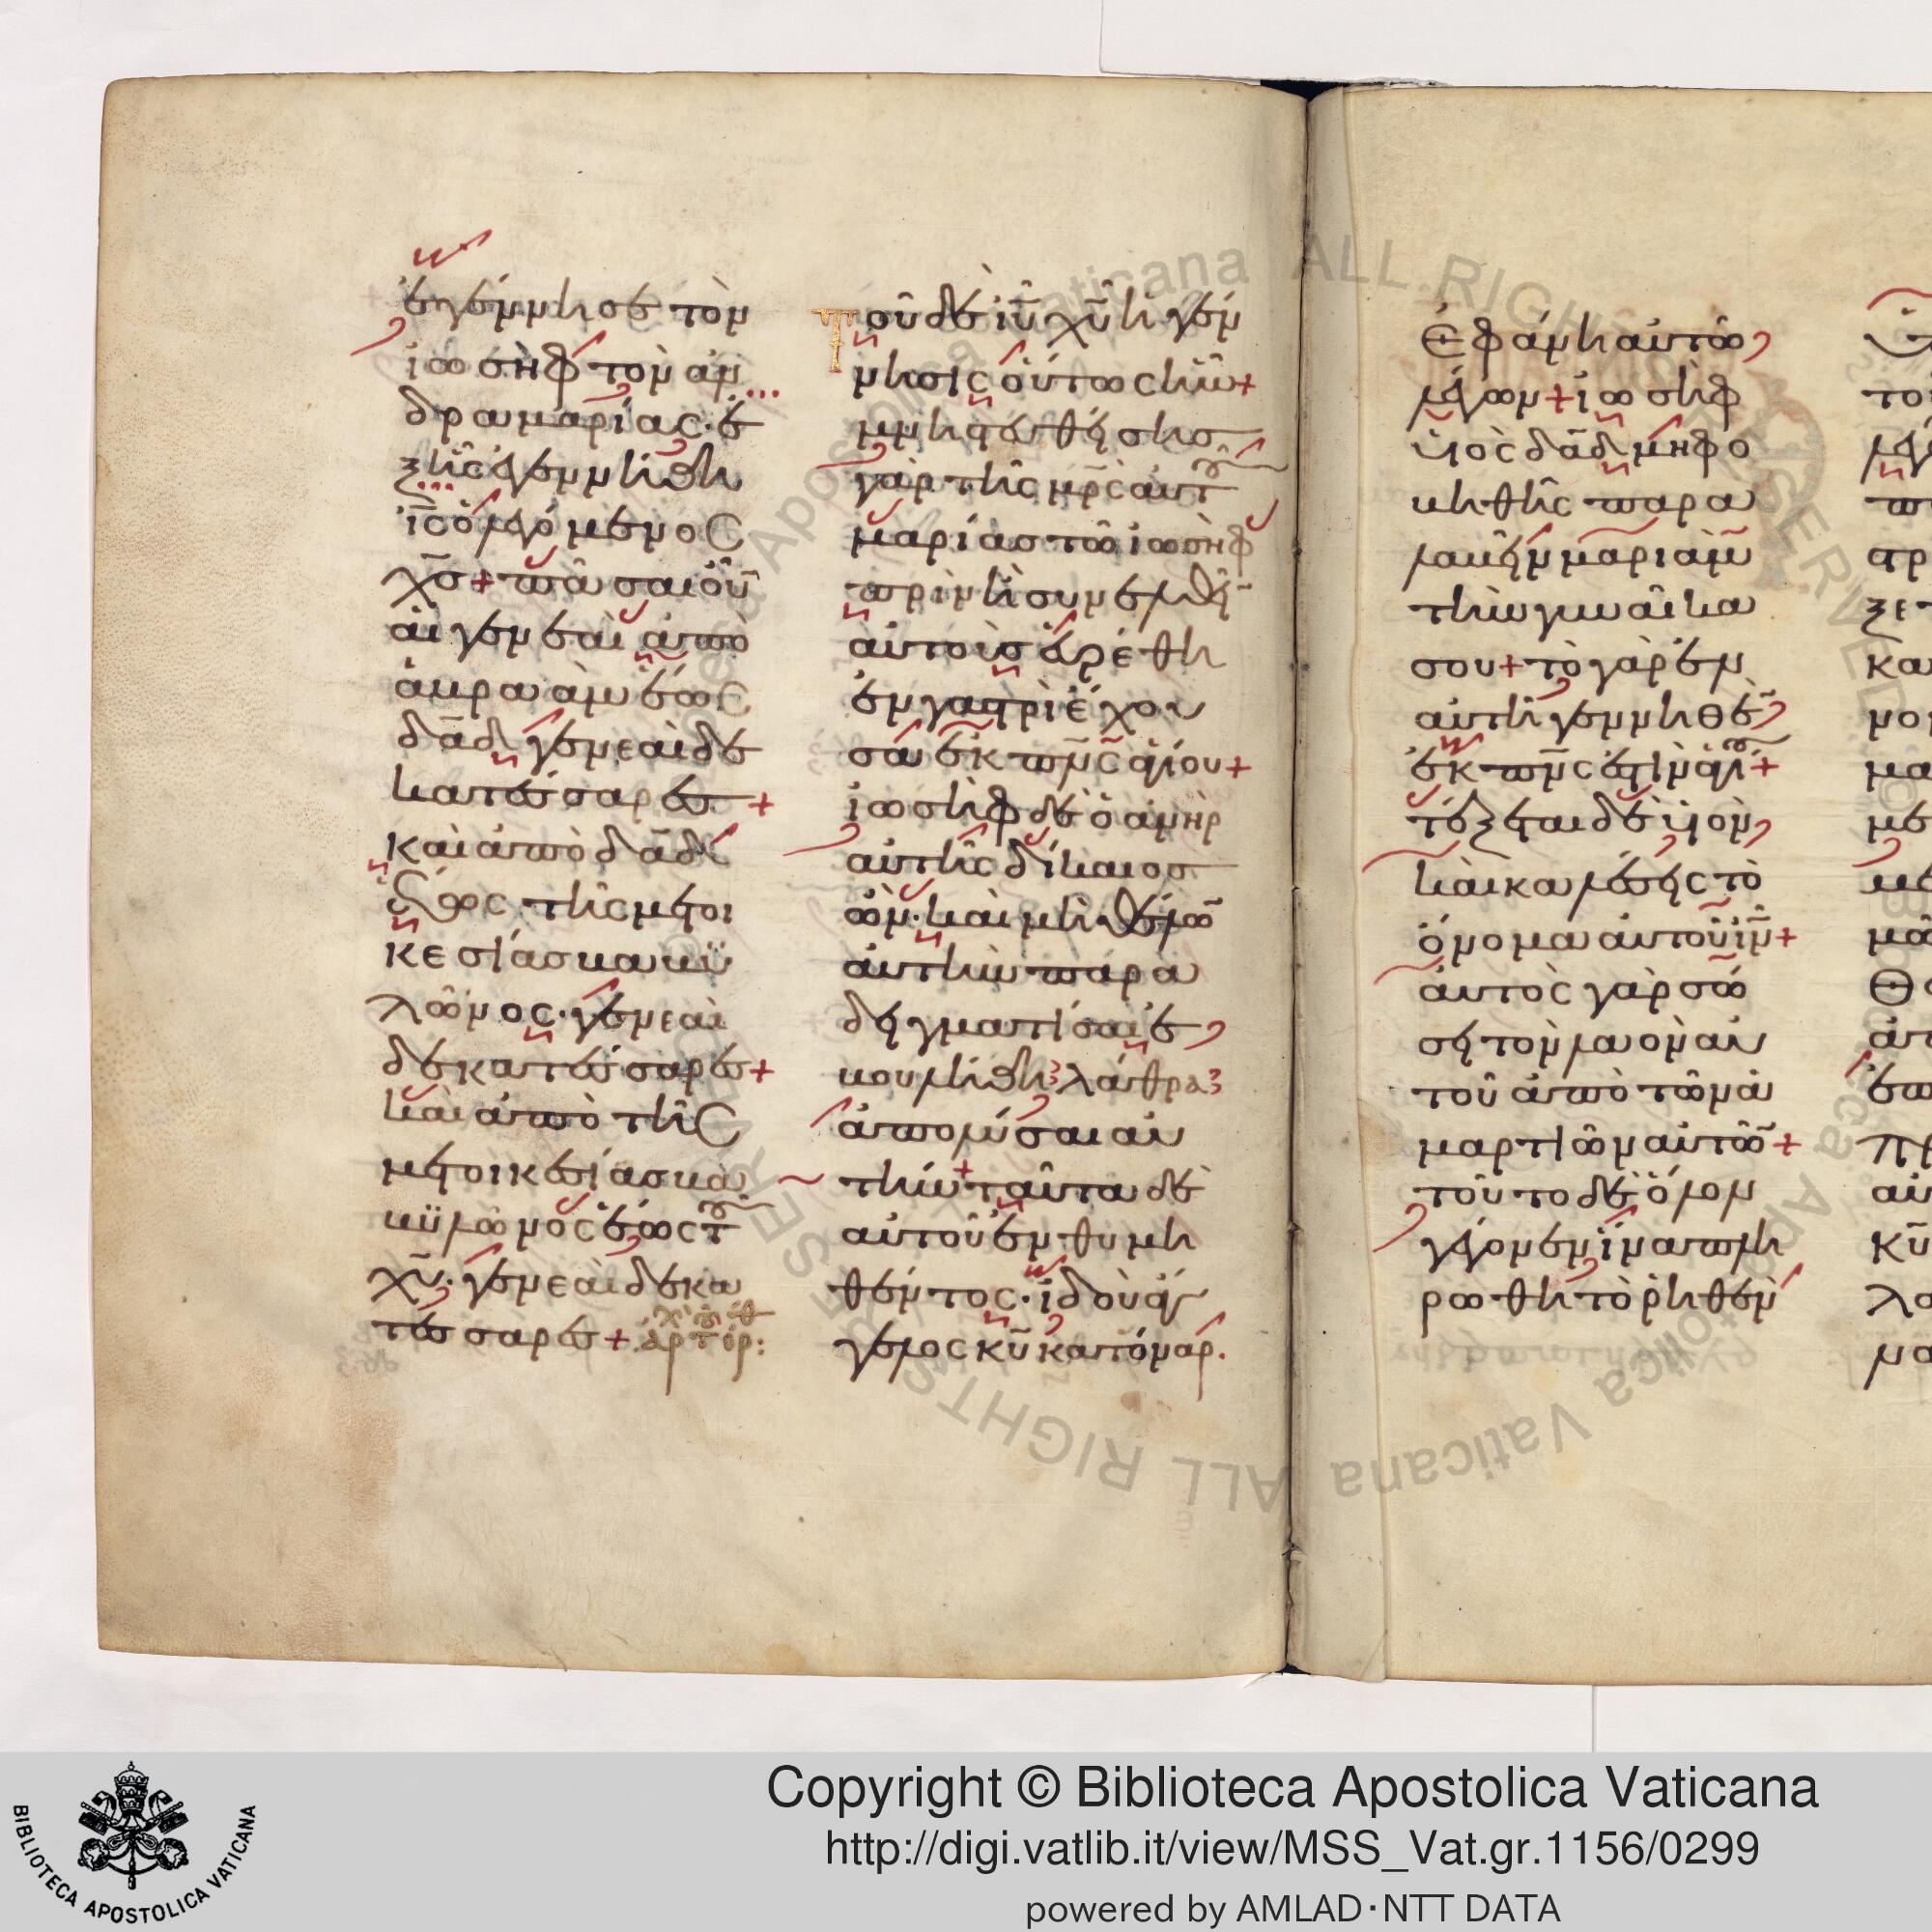 ἐγέννησε τὸν
ἰωσὴφ τὸν ἄν
δρα μαρίας· ἐ
ξ ἧς ἐγεννήθη
ι̅ς̅ ὁ λεγόμενος
χ̅ς̅ + πᾶσαι οὖν
αἱ γενεαὶ ἀπὸ
ἀβραὰμ ἕως
δ̅α̅δ̅ γενεαὶ δε
κατέσσαρες +
καὶ ἀπὸ δ̅α̅δ̅
ἕως τῆς μετοι
κεσίας βαβυ
λῶνος· γενεαὶ
δεκατέσσαρες +
καὶ ἀπὸ τῆς
μετοικεσίας βα
βυλῶνος ἕως τοῦ
χ̅υ̅· γενεαὶ δεκα
τέσσαρες +
Τοῦ δὲ ι̅υ̅ χ̅υ̅ ἡ γέν
νησις οὕτως ἦν +
μνηστευθείσης
γὰρ τῆς μ̅ρ̅ς̅ αὐτοῦ
μαρίας τῶ ἰωσὴφ
πρὶν ἢ συνελθεῖν
αὐτοὺς εὑρέθη
ἐν γαστρὶ ἔχου
σα ἐκ π̅ν̅ς̅ ἁγίου +
ἰωσὴφ δὲ ὁ ἀνὴρ
αὐτῆς δίκαιος
ὢν· καὶ μὴ θέλων
αὐτὴν παρα
δειγματίσαι ἐ
βουλήθη λάθρα
ἀπολύσαι αὐ
τήν + ταῦτα δὲ
αὐτοῦ ἐνθυμη
θέντος· ἰδοὺ ἄγ
γελος κ̅υ̅ κατόναρ.
ἐφάνη αὐτῶ
λέγων + ἰωσὴφ
υἱὸς δ̅α̅δ̅ μὴ φο
βηθῆς παρα
λαβεῖν μαριὰμ
τὴν γυναῖκα
σου + τὸ γὰρ ἐν
αὐτῆ γεννηθὲν
ἐκ π̅ν̅ς̅ ἐστὶν ἁγίου +
τέξεται δὲ υἱὸν
καὶ καλέσεις τὸ
ὄνομα αὐτοῦ ι̅ν̅ +
αὐτὸς γὰρ σώ
σει τὸν λαὸν αὐ
τοῦ ἀπὸ τῶν ἁ
μαρτιῶν αὐτῶν +
τοῦτο δὲ ὅλον
γέγονεν ἵνα πλη
ρωθῆ τὸ ῥηθὲν
Biblioteca Apostolica Vaticana ALL RIGHTS RESERVED
BIBLIOTECA APOSTOLICA VATICANA
Copyright © Biblioteca Apostolica Vaticana
http://digi.vatlib.it/view/MSS_Vat.gr.1156/0299
powered by AMLAD·NTT DATA